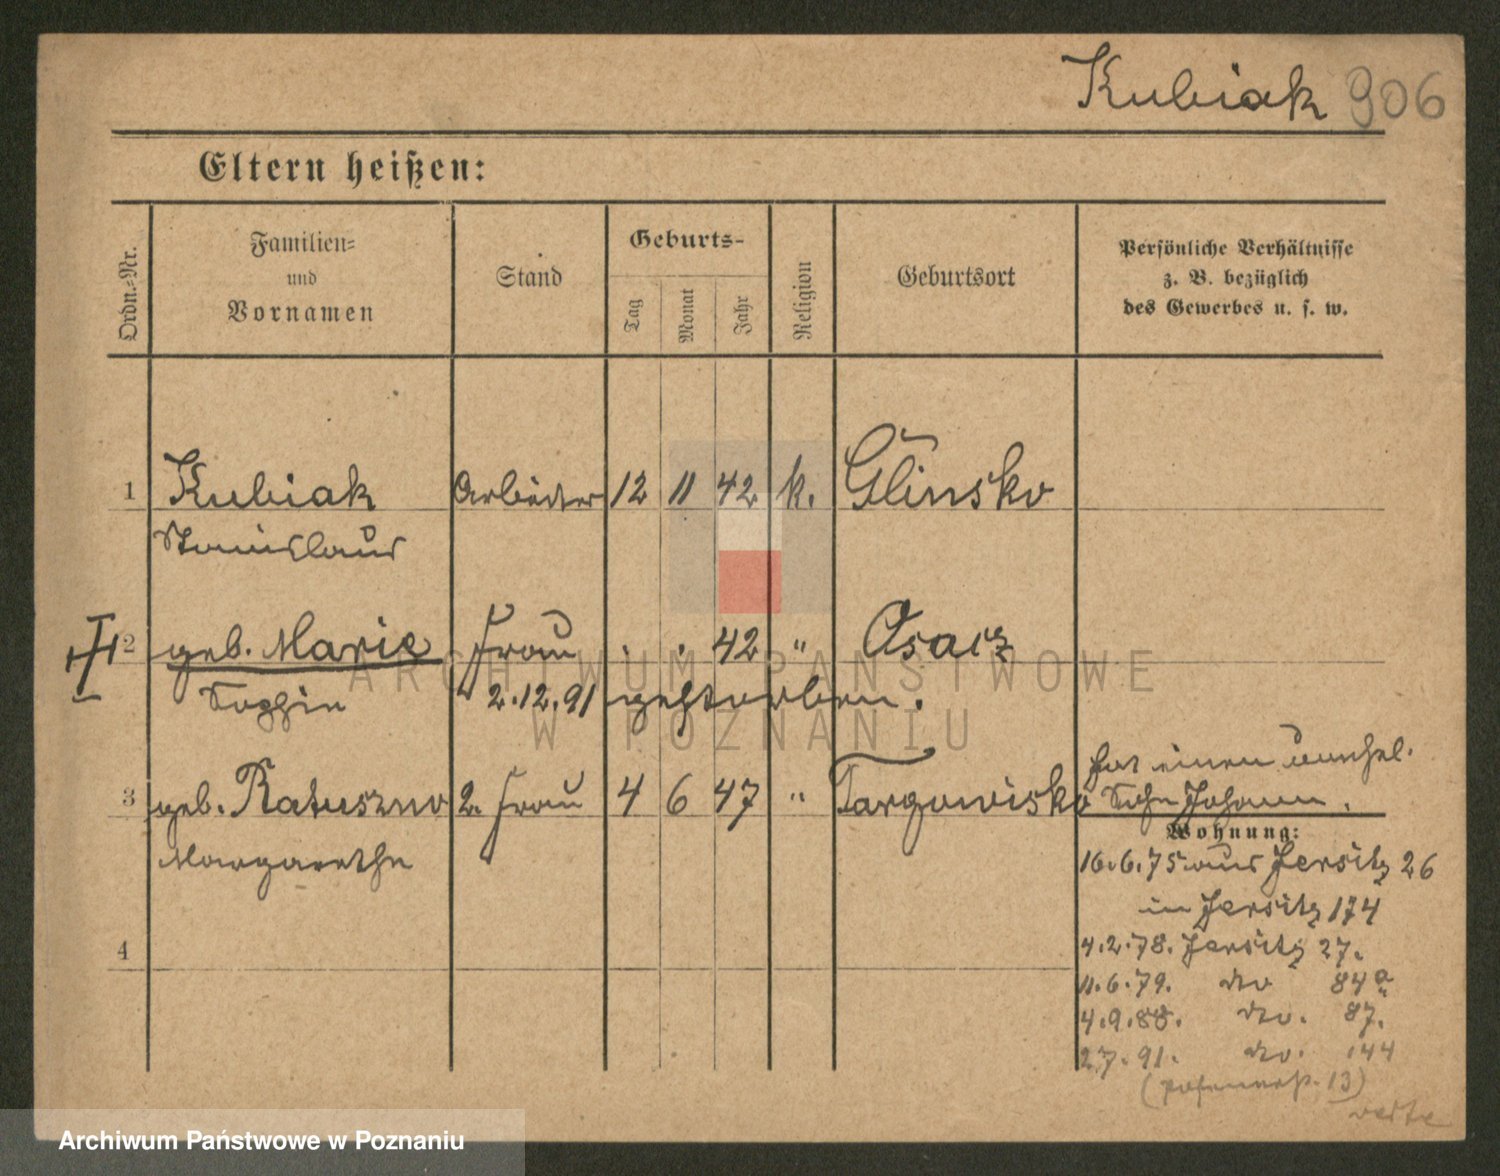 Kubiak 906
Eltern heißen:
Ordn.-Nr.
Familien-
und
Vornamen
Stand
Geburts-
Tag
Monat
Jahr
Religion
Geburtsort
Persönliche Verhältnisse
z. B. bezüglich
des Gewerbes u. s. w.
1 Kubiak Arbeiter 12 11 42 k. Glinsko
Stanislaus
2 geb. Marie Frau . . 42 " Osacz
Sophie 2.12.91 gestorben.
3 geb. Ratuszno 2. Frau 4 6 47 " Targowisko
Margarethe
hat einen unehel.
Sohn Johann.
Wohnung:
16.6.75 aus Jersitz 26
in Jersitz 174
4.2.78. Jersitz 27.
11.6.79. do 84a
4.9.88. do. 87.
2.7.91. do. 144
(Posenerst. 13)
4
ARCHIWUM PAŃSTWOWE
W POZNANIU
Archiwum Państwowe w Poznaniu